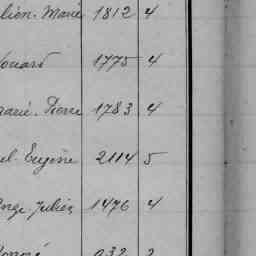 lien-Marie 1812 4
douard 1775 4
arie-Pierre 1783 4
el-Eugène 2114 5
nge-Julien 1476 4
932 2